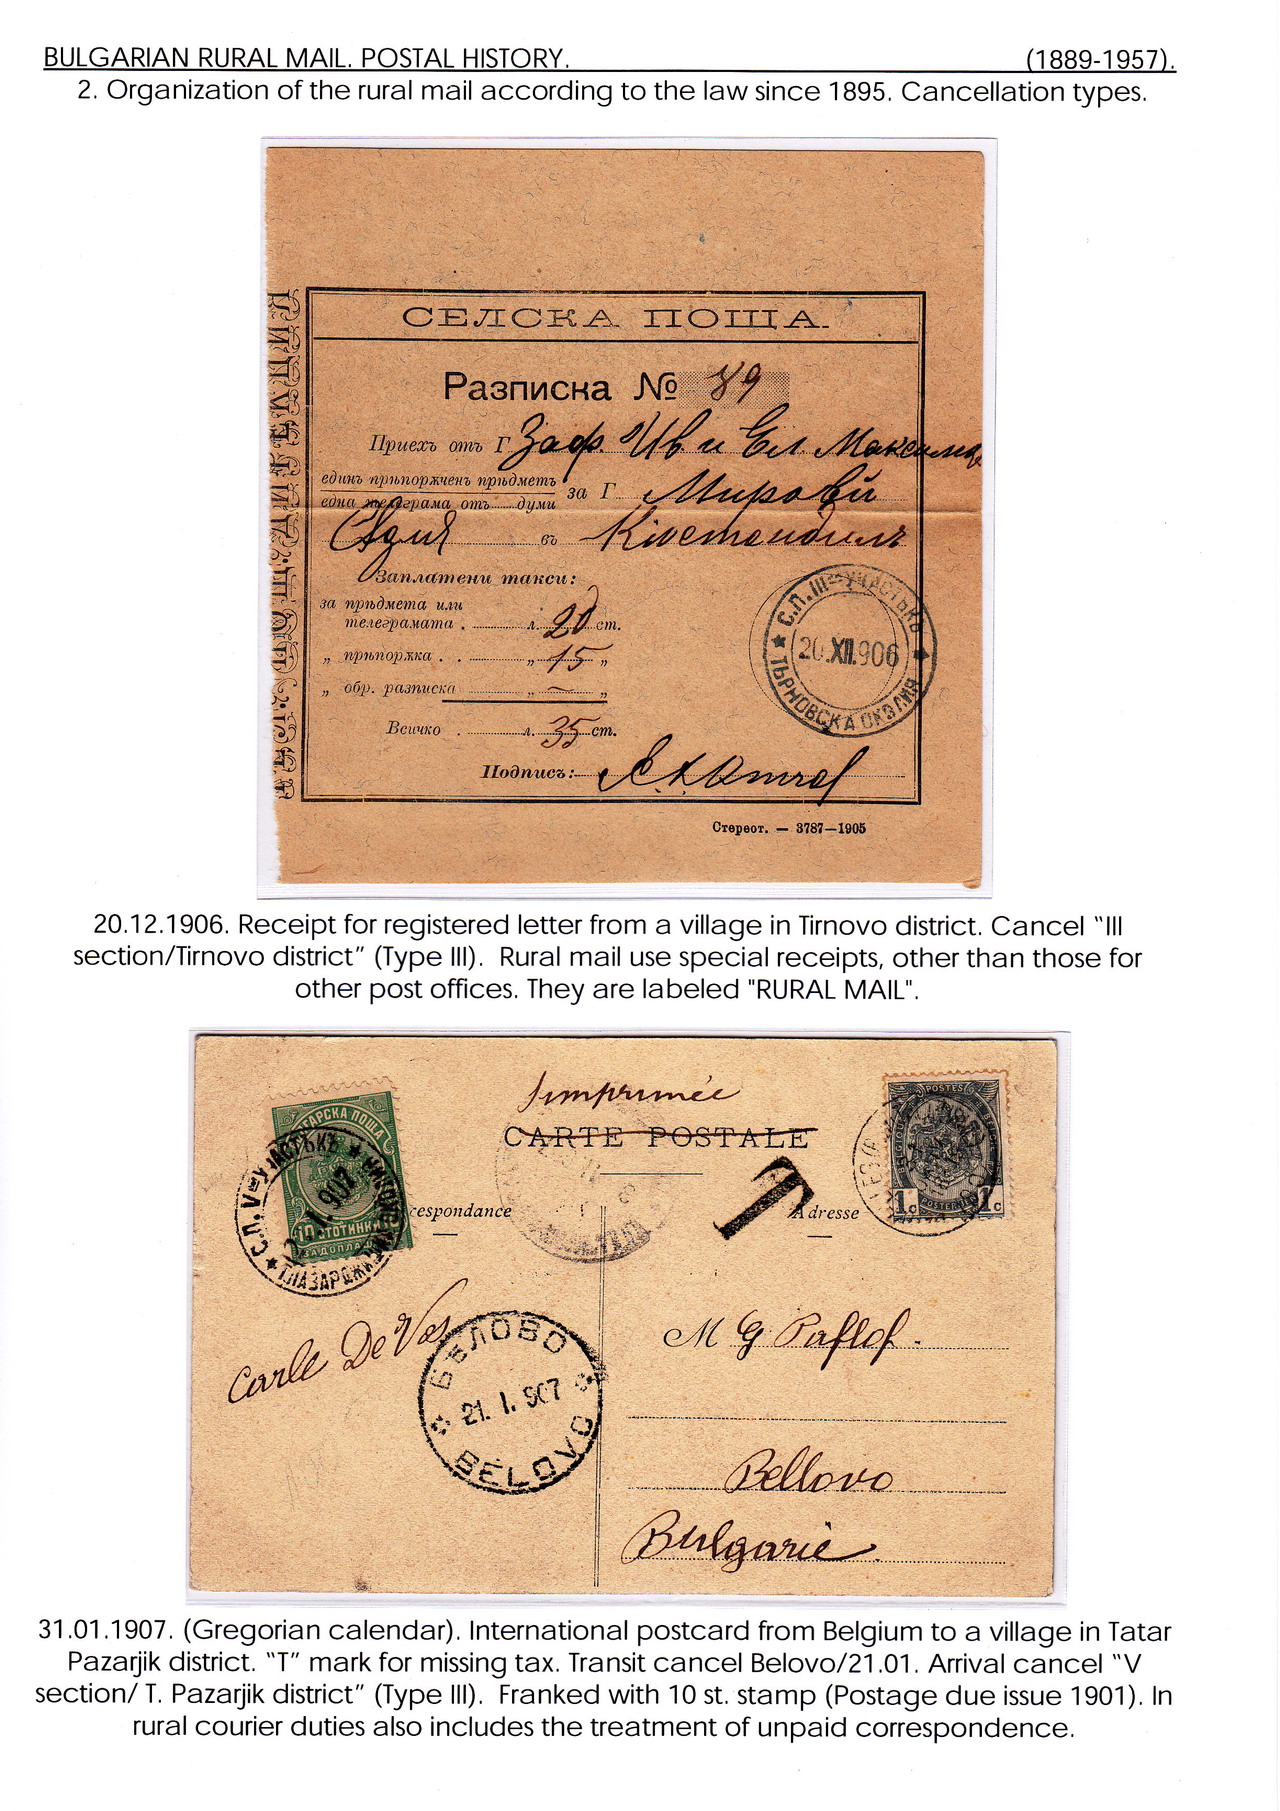 BULGARIAN RURAL MAIL. POSTAL HISTORY. (1889-1957).
2. Organization of the rural mail according to the law since 1895. Cancellation types.
СЕЛСКА ПОЩА.
Разписка № 89
Приехъ отъ Г Заф. Ив и Ел
единъ прѣпорѫченъ прѣдметъ
една телеграма отъ думи
за Г.
въ Кюстендилъ
Заплатени такси:
за прѣдмета или
телеграмата . л. 20 ст.
„ прѣпорѫка . . „ 15 „
„ обр. разписка „ — „
Всичко . л. 35 ст.
Подписъ:
С.П. III УЧАСТЪКЪ
20.XII.906
ТЪРНОВСКА ОКОЛИЯ
Стереот. — 3787—1905
20.12.1906. Receipt for registered letter from a village in Tirnovo district. Cancel "III
section/Tirnovo district" (Type III). Rural mail use special receipts, other than those for
other post offices. They are labeled "RURAL MAIL".
Imprimée
CARTE POSTALE
ГАРСКА ПОЩА
10 СТОТИНКИ
ЗА ДОПЛА
С.П. V УЧАСТЪКЪ
1.907
POSTES
1c 1c
POSTERIJEN
T
respondance
Adresse
Carle De Vos
БѢЛОВО
21.I.907
BELOVO
M G Paflof.
Bellovo
Bulgarie
31.01.1907. (Gregorian calendar). International postcard from Belgium to a village in Tatar
Pazarjik district. "T" mark for missing tax. Transit cancel Belovo/21.01. Arrival cancel "V
section/ T. Pazarjik district" (Type III). Franked with 10 st. stamp (Postage due issue 1901). In
rural courier duties also includes the treatment of unpaid correspondence.